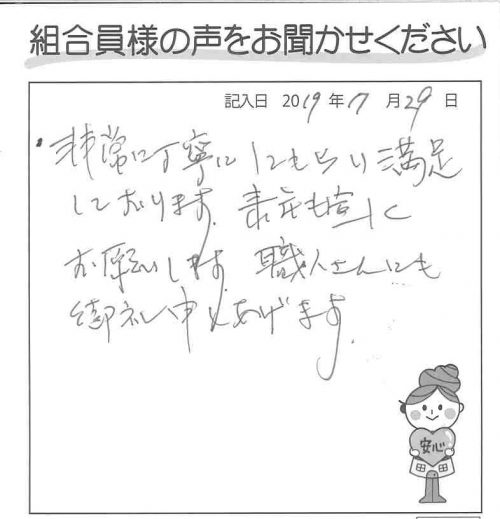 組合員様の声をお聞かせください
記入日 2019年7月29日
非常に丁寧にしてもらい満足
しております。
お願いします。職人さんにも
御礼申しあげます。
安心